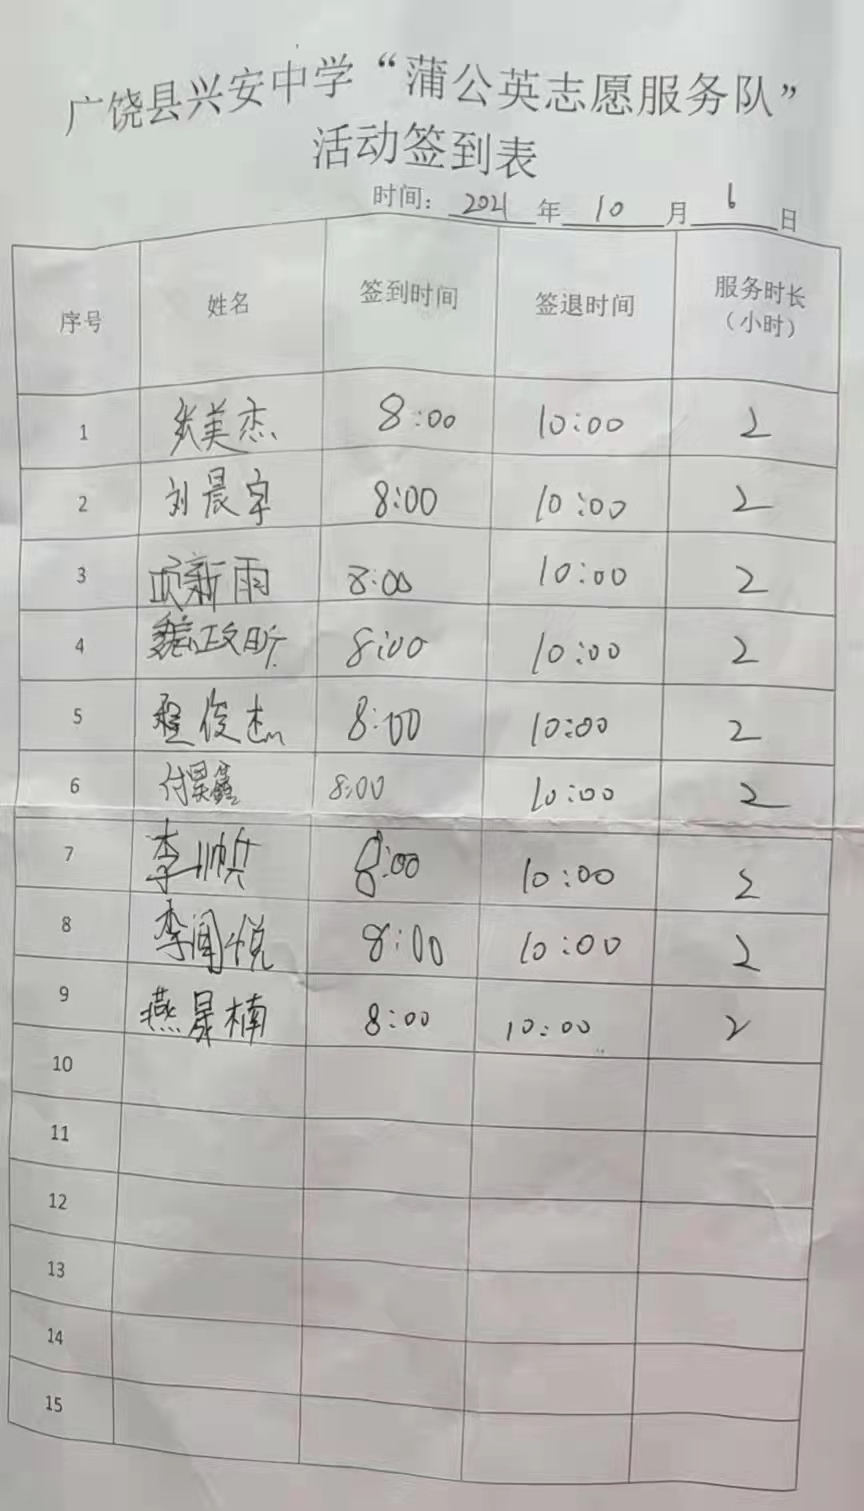 广饶县兴安中学“蒲公英志愿服务队”
活动签到表
时间: 2021 年 10 月 6 日
序号 姓名 签到时间 签退时间 服务时长（小时）
1 张美杰 8:00 10:00 2
2 刘晨宇 8:00 10:00 2
3 项新雨 8:00 10:00 2
4 魏政昕 8:00 10:00 2
5 程俊杰 8:00 10:00 2
6 付昊鑫 8:00 10:00 2
7 李帅兵 8:00 10:00 2
8 李闻悦 8:00 10:00 2
9 燕晟楠 8:00 10:00 2
10
11
12
13
14
15